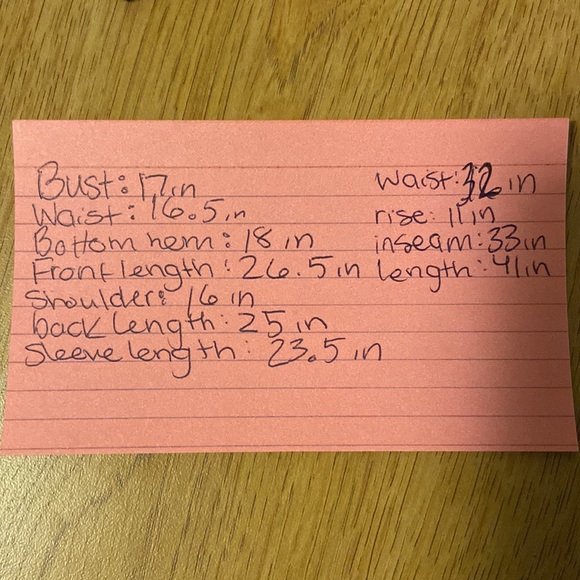 Bust: 17in
Waist: 16.5in
Bottom hem: 18 in
Front length: 26.5 in
Shoulder: 16 in
back length: 25 in
Sleeve length: 23.5 in
waist: in
rise: 11in
inseam: 33in
length: 41in